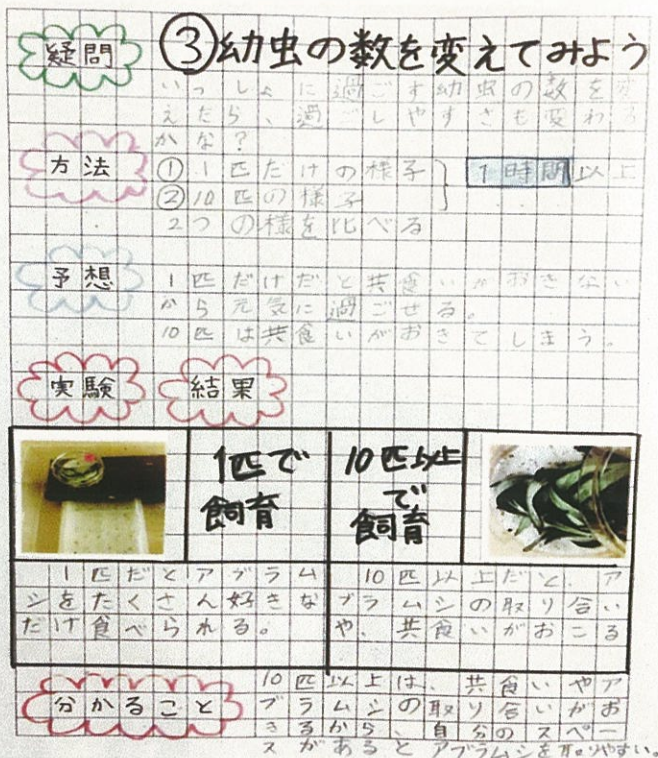 ③幼虫の数を変えてみよう
疑問
いっしょに過ごす幼虫の数を変
えたら、過ごしやすさも変わる
かな?
方法
①1匹だけの様子
②10匹の様子
1時間以上
2つの様を比べる
予想
1匹だけだと共食いがおきない
から元気に過ごせる。
10匹は共食いがおきてしまう。
実験
結果
1匹で
飼育
10匹以上
で
飼育
1匹だとアブラム
シをたくさん好きな
だけ食べられる。
10匹以上だと、ア
ブラムシの取り合い
や、共食いがおこる
分かること
10匹以上は、共食いやア
ブラムシの取り合いがお
きるから、自分のスペー
スがあるとアブラムシを取りやすい。